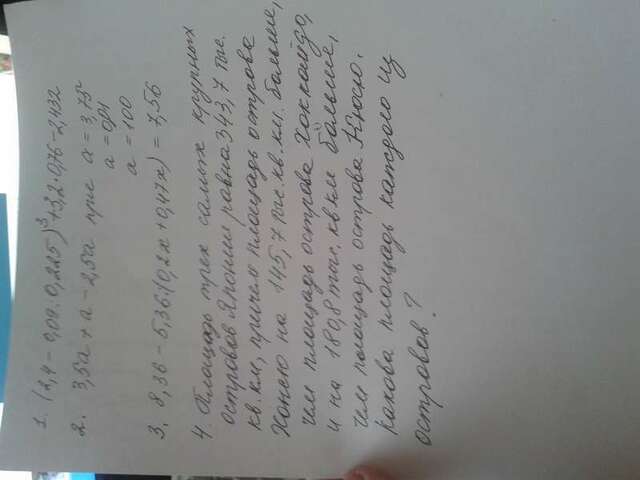 1. (2,4 - 0,09 : 0,225)³ + 3,2 · 0,76 - 2,432
2. 3,5а + а - 2,5а при а = 3,75
а = 0,01
а = 100
3. 8,36 - 5,36 : (0,2х + 0,47х) = 7,56
4 Площадь трех самых крупных
островов Японии равна 343,7 тыс.
кв. км, причем площадь острова
Хонсю на 145,7 тыс. кв. км. больше,
чем площадь острова Хоккайдо,
и на 180,8 тыс. кв км больше,
чем площадь острова Кюсю.
Какова площадь каждого из
островов?